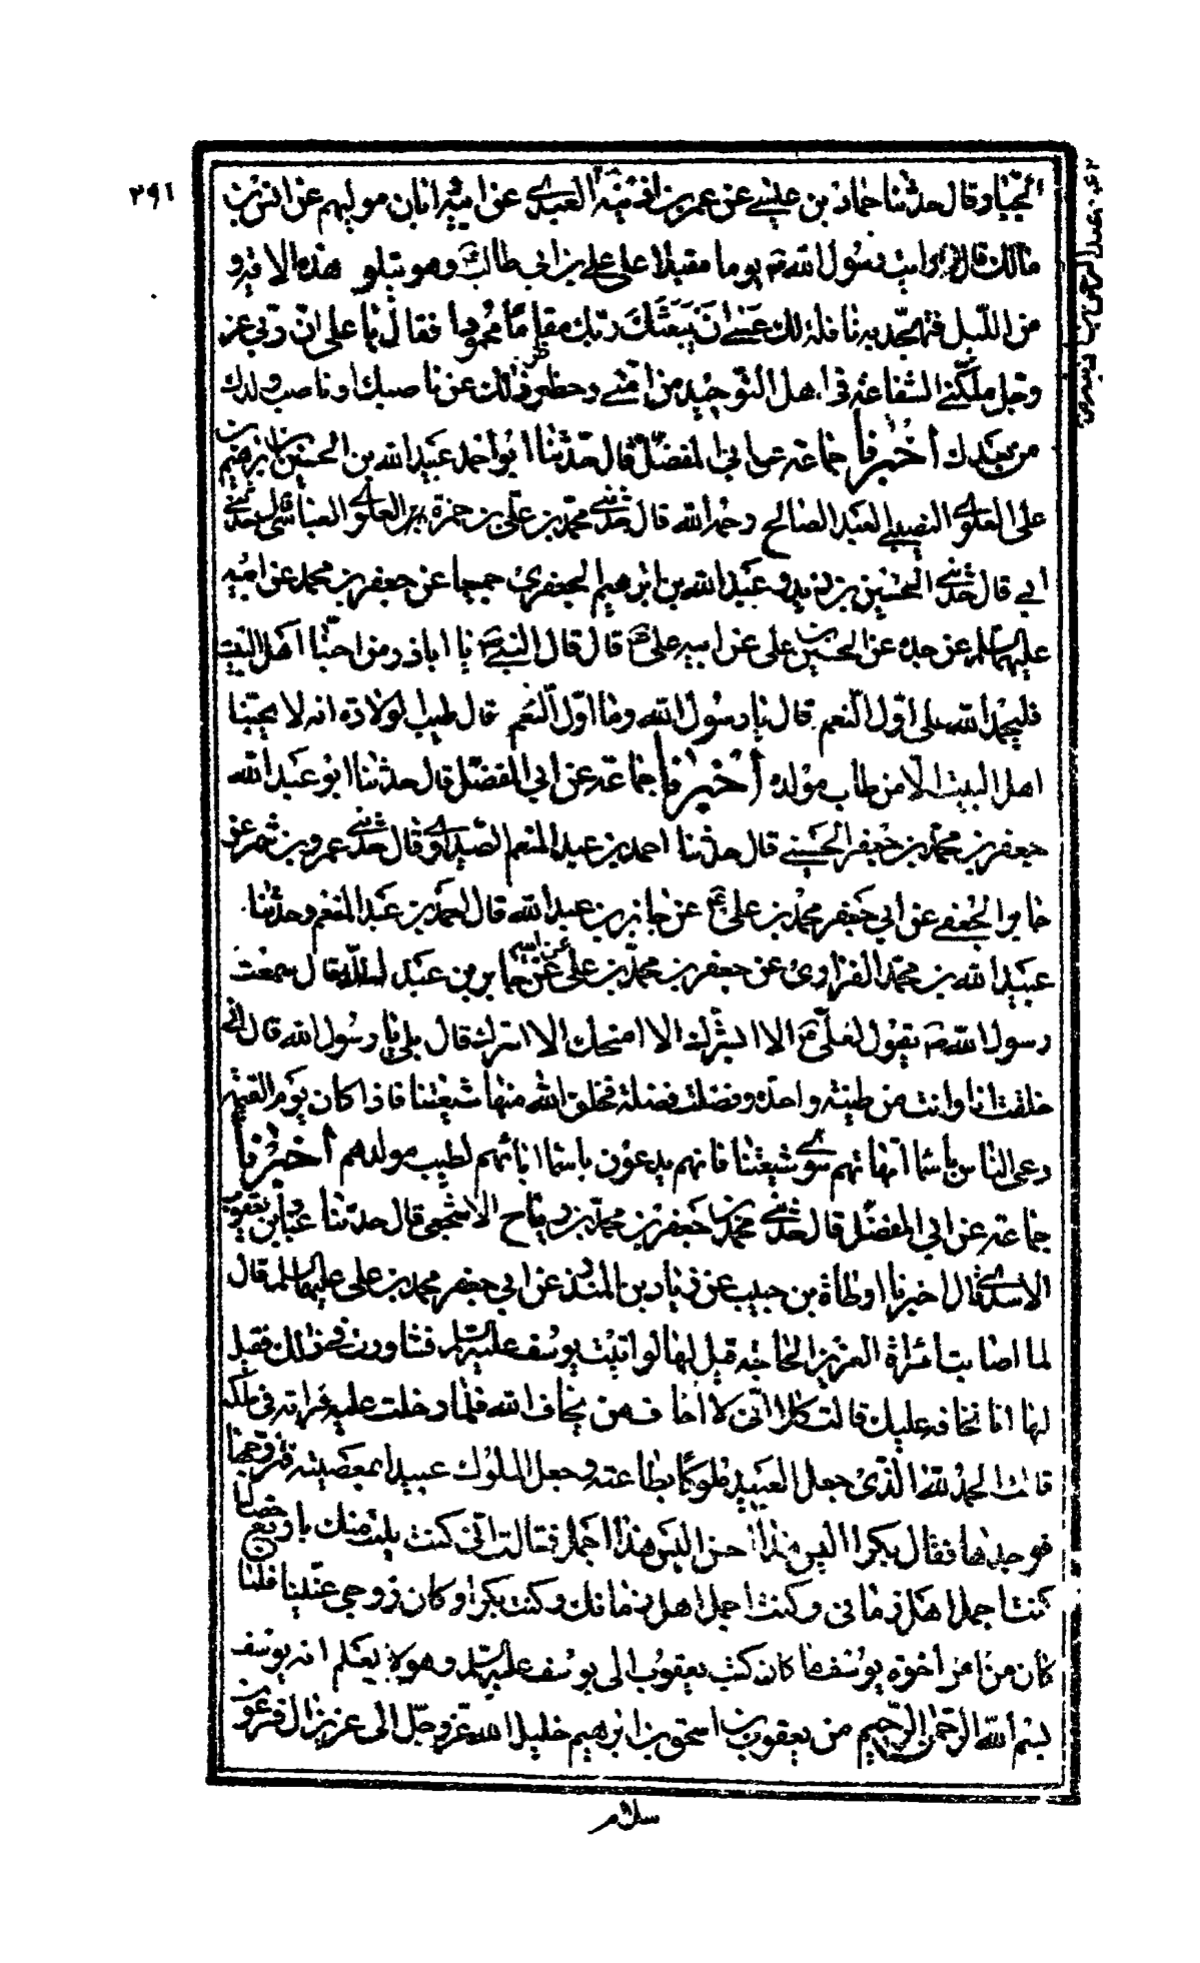 ٢٩١
وقال حدثنا حماد بن عيسى عن عمر بن اذينه العبدي عن ابان مولهم عن انس بن
مالك قال رايت رسول الله ص يوما مقبلا على علي بن ابي طالب وهو يتلو هذه الاية و
من الليل فتهجد به نافلة لك عسى ان يبعثك ربك مقاما محمودا فقال يا علي ان ربي عز
وجل ملكني الشفاعة في اهل التوحيد من امتي وحظر ذلك عن من ناصبك او ناصب ولدك
من بعدك أخبرنا جماعة عن ابي المفضل قال حدثنا ابو احمد عبيد الله بن الحسين بن ابرهيم
على العلوي النصيبي العبد الصالح رحمه الله قال حدثني محمد بن علي بن حمزة العلوي العباسي قال حدثني
أبي قال حدثني الحسين بن زيد و عبد الله بن ابرهيم الجعفري جميعا عن جعفر بن محمد عن ابيه
عليهما السلم عن جده عن الحسين بن علي عن ابيه علي ع قال قال النبي ص يا اباذر من احبنا اهل البيت
فليحمد الله على اول النعم قال يا رسول الله وما اول النعم قال طيب الولادة انه لا يحبنا
اهل البيت الا من طاب مولده أخبرنا جماعة عن ابي المفضل قال حدثنا ابو عبد الله
جعفر بن محمد بن جعفر الحسني قال حدثنا احمد بن عبد المنعم الصيداوي قال حدثني عمرو بن شمر عن
جابر الجعفي عن ابي جعفر محمد بن علي ع عن جابر بن عبد الله قال احمد بن عبد المنعم وحدثنا
عبيد الله بن محمد الفزاري عن جعفر بن محمد بن علي عن ابيه عن جابر بن عبد الله قال سمعت
رسول الله ص يقول لعلي ع الا ابشرك الا امنحك الا اسرك قال بلى يا رسول الله قال اني
خلقت انا وانت من طينة واحدة وفضلت فضلة فخلق الله منها شيعتنا فاذا كان يوم القيمة
دعي الناس باسماء امهاتهم سوى شيعتنا فانهم يدعون باسماء ابائهم لطيب مولدهم أخبرنا
جماعة عن ابي المفضل قال حدثني محمد بن جعفر بن محمد بن رباح الاشجعي قال حدثنا عباد بن يعقوب
الاسدي قال اخبرنا اوطاة بن حبيب عن زياد بن المنذر عن ابي جعفر محمد بن علي عليهما السلم قال
لما اصابت امراة العزيز الحاجة قيل لها لو اتيت يوسف عليه السلم فشاورت في ذلك فقيل
لها انا نخافه عليك قالت كلا اني لا أخاف من يخاف الله فلما دخلت عليه فراته في ملكه
قالت الحمد لله الذي جعل العبيد ملوكا بطاعته وجعل الملوك عبيدا بمعصيته فتزوجها
فوجدها بكرا فقال اليس هذا احسن اليس هذا اجمل فقالت اني كنت بليت منك باربع خصال
كنت اجمل اهل زماني وكنت اجمل اهل زمانك وكنت بكرا وكان زوجي عنينا فلما
كان من امر اخوة يوسف ما كان كتب يعقوب الى يوسف عليه السلم وهو لا يعلم انه يوسف
بسم الله الرحمن الرحيم من يعقوب بن اسحق بن ابرهيم خليل الله عز وجل الى عزيز ال فرعون
سلام